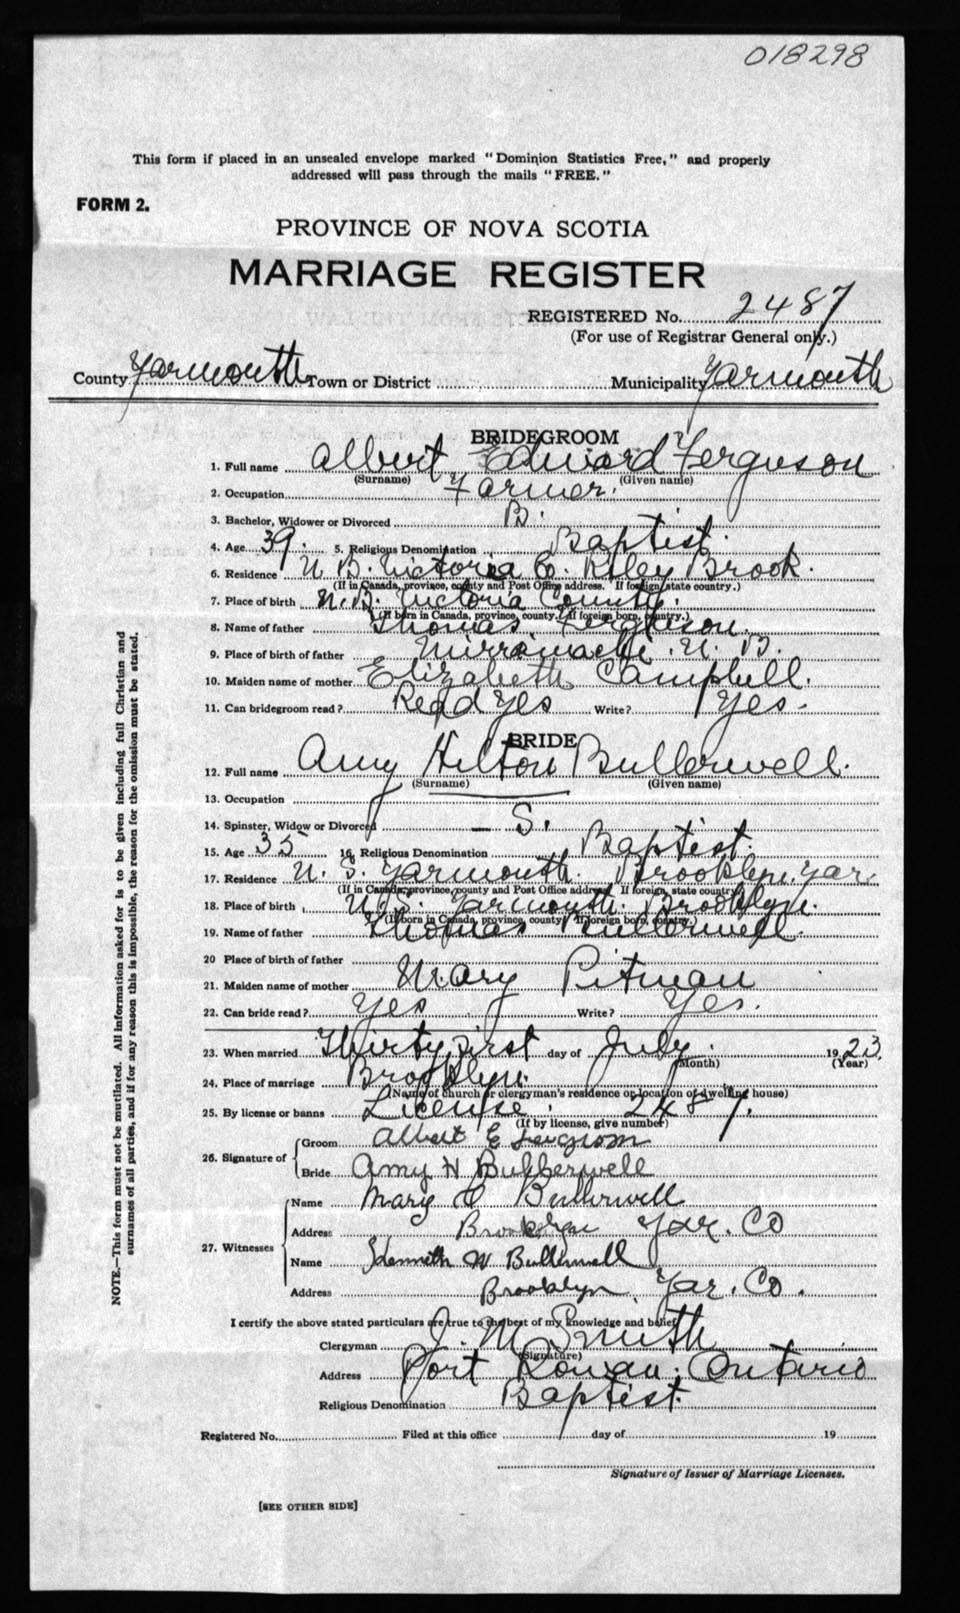 018298
This form if placed in an unsealed envelope marked "Dominion Statistics Free," and properly
addressed will pass through the mails "FREE."
FORM 2.
PROVINCE OF NOVA SCOTIA
MARRIAGE REGISTER
REGISTERED No. 2487
(For use of Registrar General only.)
County Yarmouth Town or District Municipality Yarmouth
BRIDEGROOM
1. Full name Albert Edward Ferguson
(Surname) (Given name)
2. Occupation Farmer.
3. Bachelor, Widower or Divorced B.
4. Age 39. 5. Religious Denomination Baptist.
6. Residence N. B. Victoria Co. Riley Brook.
(If in Canada, province, county and Post Office address. If foreign, state country.)
7. Place of birth N. B. Victoria County.
(If born in Canada, province, county. If foreign born, country.)
8. Name of father Thomas Ferguson.
9. Place of birth of father Mirramachi. N. B.
10. Maiden name of mother Elizabeth Campbell.
11. Can bridegroom read? Read Yes Write? Yes.
BRIDE
12. Full name Amy Hilton Bullerwell.
(Surname) (Given name)
13. Occupation
14. Spinster, Widow or Divorced S.
15. Age 35 16. Religious Denomination Baptist.
17. Residence N. S. Yarmouth. Brooklyn. Yar.
(If in Canada, province, county and Post Office address. If foreign, state country.)
18. Place of birth N. S. Yarmouth. Brooklyn.
(If born in Canada, province, county. If foreign born, country.)
19. Name of father Thomas Bullerwell.
20 Place of birth of father
21. Maiden name of mother Mary Pitman
22. Can bride read? Yes Write? Yes.
23. When married Thirty first day of July. 1923.
(Month) (Year)
24. Place of marriage Brooklyn.
(Name of church or clergyman's residence or location of dwelling house)
25. By license or banns License. 2487.
(If by license, give number)
26. Signature of Groom Albert E Ferguson
Bride Amy H Bullerwell
27. Witnesses Name Mary Bullerwell
Address Brooklyn Yar. Co
Name Kenneth W Bullerwell
Address Brooklyn, Yar. Co.
I certify the above stated particulars are true to the best of my knowledge and belief.
Clergyman J. M. Smith
(Signature)
Address Port Rowan. Ontario
Religious Denomination Baptist.
Registered No. Filed at this office day of 19
Signature of Issuer of Marriage Licenses.
[SEE OTHER SIDE]
NOTE.—This form must not be mutilated. All information asked for is to be given including full Christian and
surnames of all parties, and if for any reason this is impossible, the reason for the omission must be stated.